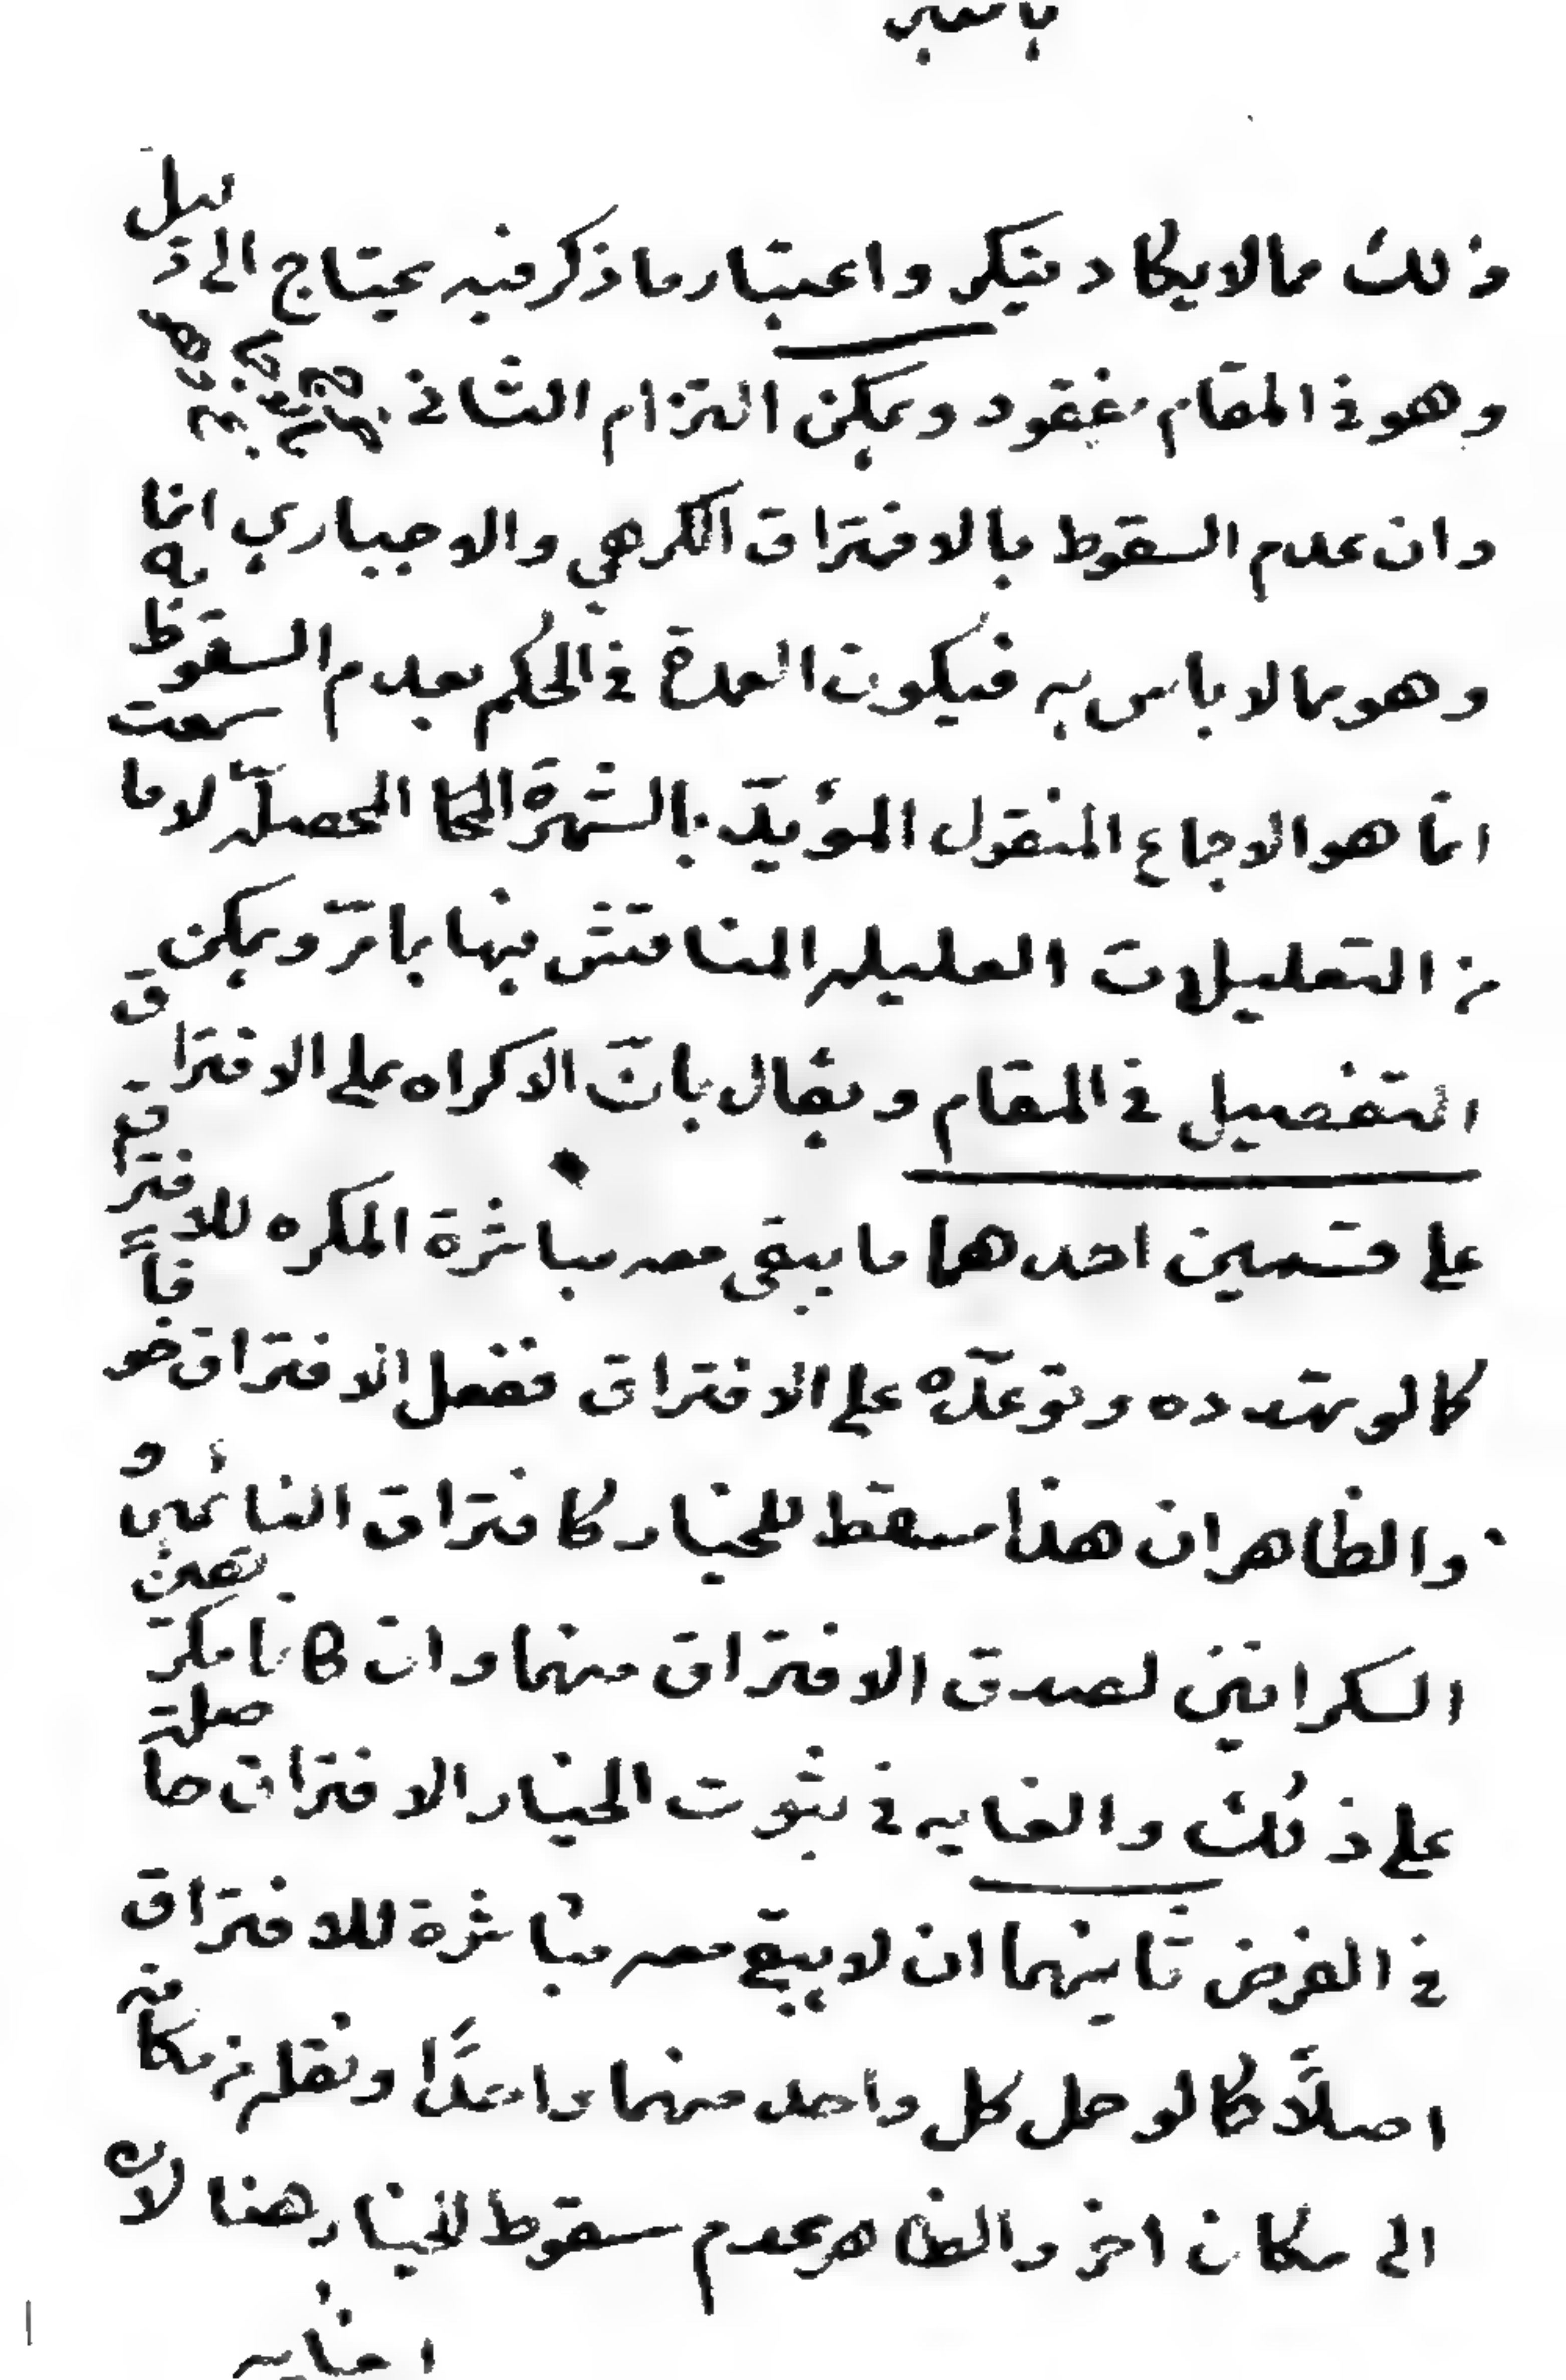 ذلك مما لا يكاد ينكر واعتبار ما ذكر فيه يحتاج الى دليل
وهو في المقام مفقود ويمكن التزام الثاني
وان عدم السقوط بالافتراق الكرهي والاجباري انما
وهو مما لا باس به فيكون العمدة في الحكم بعدم السقوط
انما هو الاجماع المنقول المؤيد بالشهرة المحصلة لا ما سمعت
من التعليلات العليله المناقش فيها بما مر ويمكن
التفصيل في المقام ويقال بان الاكراه على الافتراق
على قسمين احدهما ما يبقى معه مباشرة المكره للافتراق
كما لو تهدده وتوعده على الافتراق ففعل الافتراق خوفاً
والظاهر ان هذا مسقط للخيار كافتراق النائمين و
السكرانين لصدق الافتراق منهما وان كانا مكرهين
على ذلك والغايه في ثبوت الخيار الافتراق حاصلة
في الفرض ثانيهما ان لا يبقى معه مباشرة للافتراق
اصلاً كما لو حمل كل واحد منهما واحداً ونقله من مكانه
الى مكان اخر والظاهر عدم سقوط الخيار هنا لان